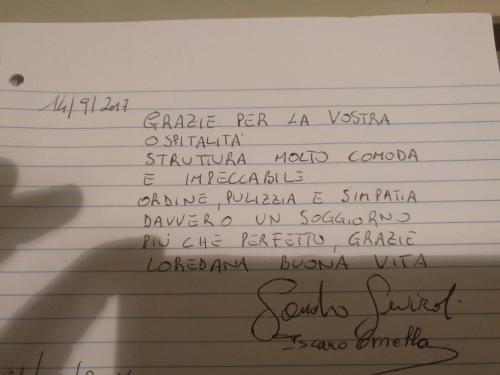 14/9/2017
GRAZIE PER LA VOSTRA
OSPITALITÀ
STRUTTURA MOLTO COMODA
E IMPECCABILE
ORDINE, PULIZZIA E SIMPATIA
DAVVERO UN SOGGIORNO
PIÙ CHE PERFETTO, GRAZIE
LOREDANA BUONA VITA
Iscaro Ornella